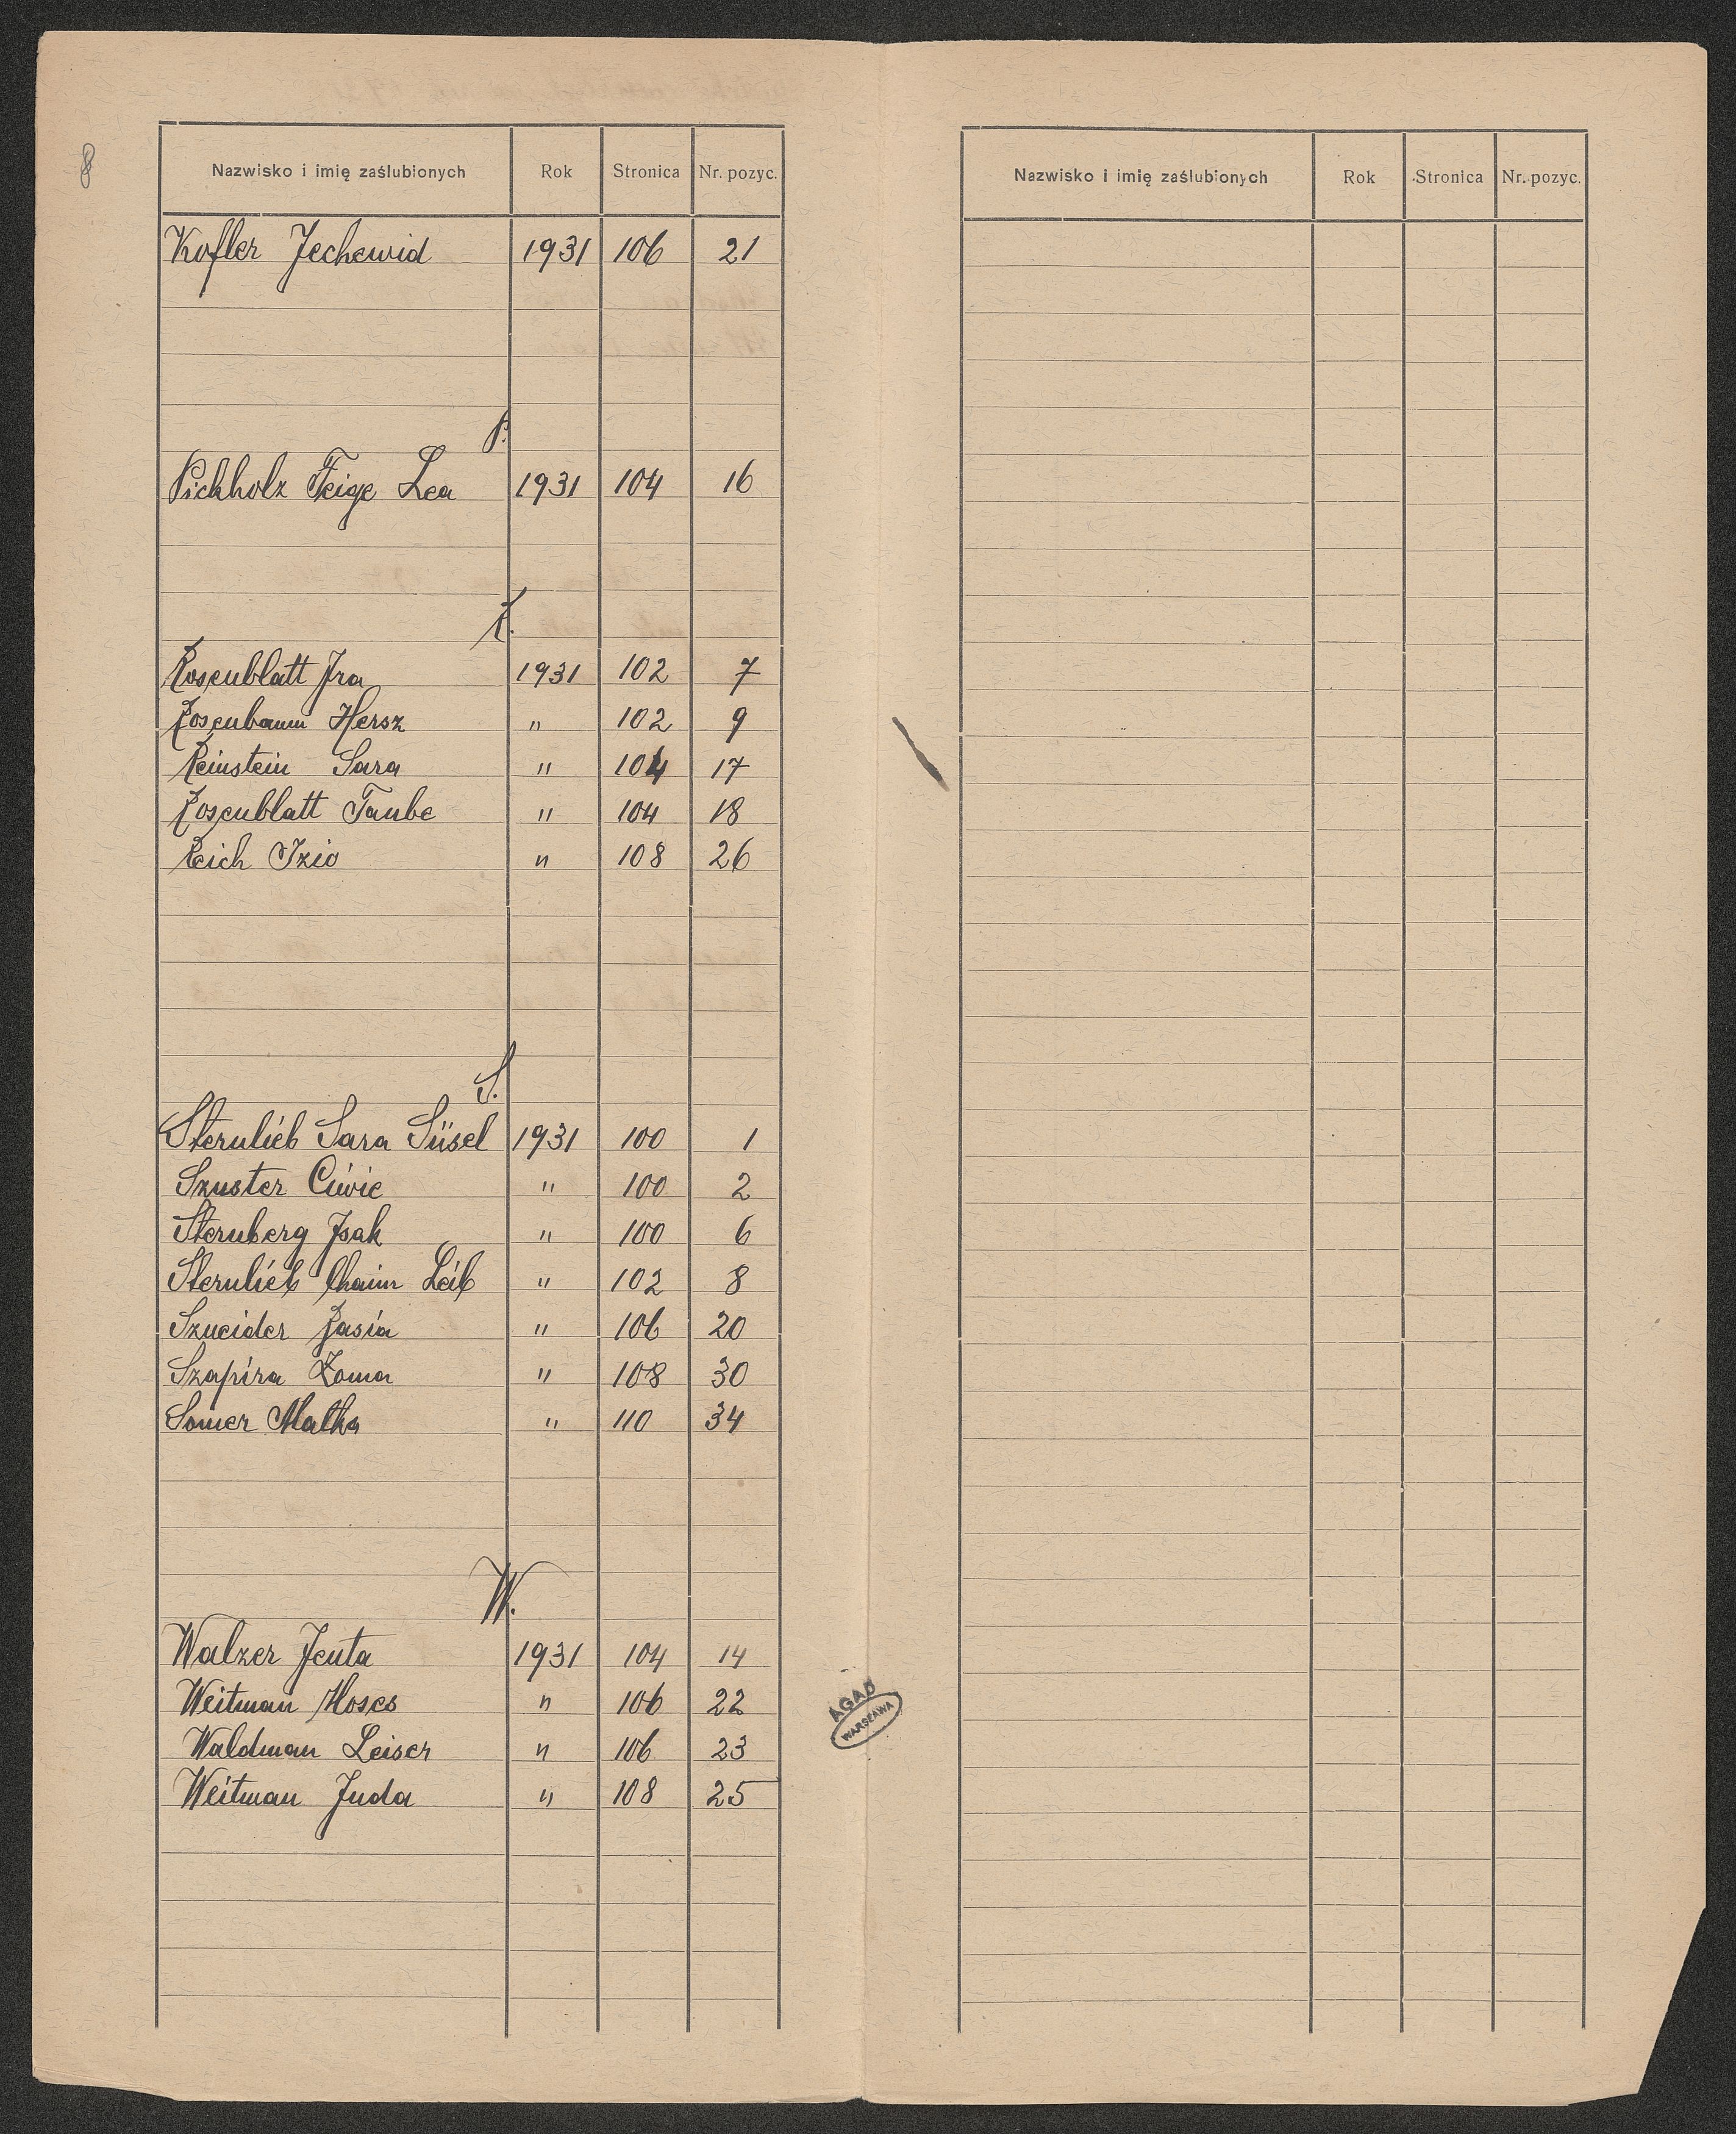 8
Nazwisko i imię zaślubionych Rok Stronica Nr. pozyc.
Kofler Jechewid 1931 106 21
P.
Pichholz Feige Lea 1931 104 16
R.
Rosenblatt Ira 1931 102 7
Rosenbaum Hersz " 102 9
Reinstein Sara " 104 17
Rosenblatt Taube " 104 18
Reich Izio " 108 26
S.
Sternlieb Sara Süsel 1931 100 1
Szuster Ciwie " 100 2
Sternberg Isak " 100 6
Sternlieb Chaim Leib " 102 8
Szneider Rasia " 106 20
Szapira " 108 30
Somer Malka " 110 34
W.
Walzer Jenta 1931 104 14
Weitman Moses " 106 22
Waldman Leiser " 106 23
Weitman Juda " 108 25
AGAD
WARSZAWA
Nazwisko i imię zaślubionych Rok Stronica Nr. pozyc.